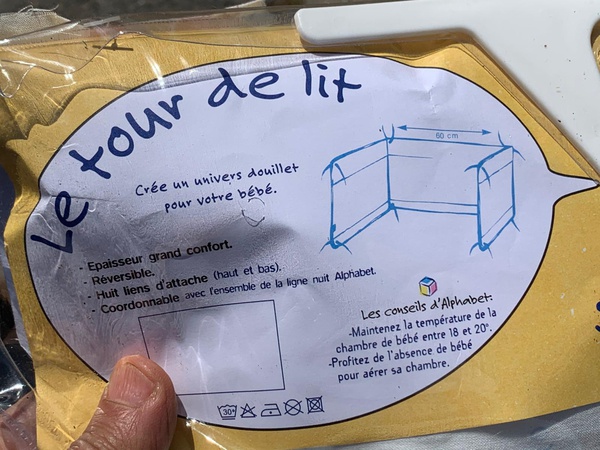 Le tour de lit
Crée un univers douillet
pour votre bébé.
60 cm
- Epaisseur grand confort.
- Réversible.
- Huit liens d'attache (haut et bas).
- Coordonnable avec l'ensemble de la ligne nuit Alphabet.
Les conseils d'Alphabet:
-Maintenez la température de la
chambre de bébé entre 18 et 20°.
-Profitez de l'absence de bébé
pour aérer sa chambre.
30°